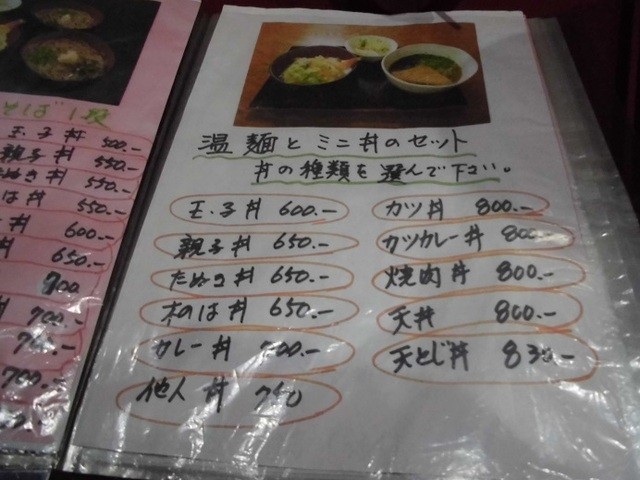 そば1食
玉子丼 500.-
親子丼 550.-
たぬき丼 550.-
のは丼 550.-
丼 600.-
丼 650.-
700
700.-
700.-
温麺とミニ丼のセット
丼の種類を選んで下さい。
玉子丼 600.-
親子丼 650.-
たぬき丼 650.-
木のは丼 650.-
カレー丼 700.-
他人丼
カツ丼 800.-
カツカレー丼
焼肉丼 800.-
天丼 800.-
天とじ丼 830.-